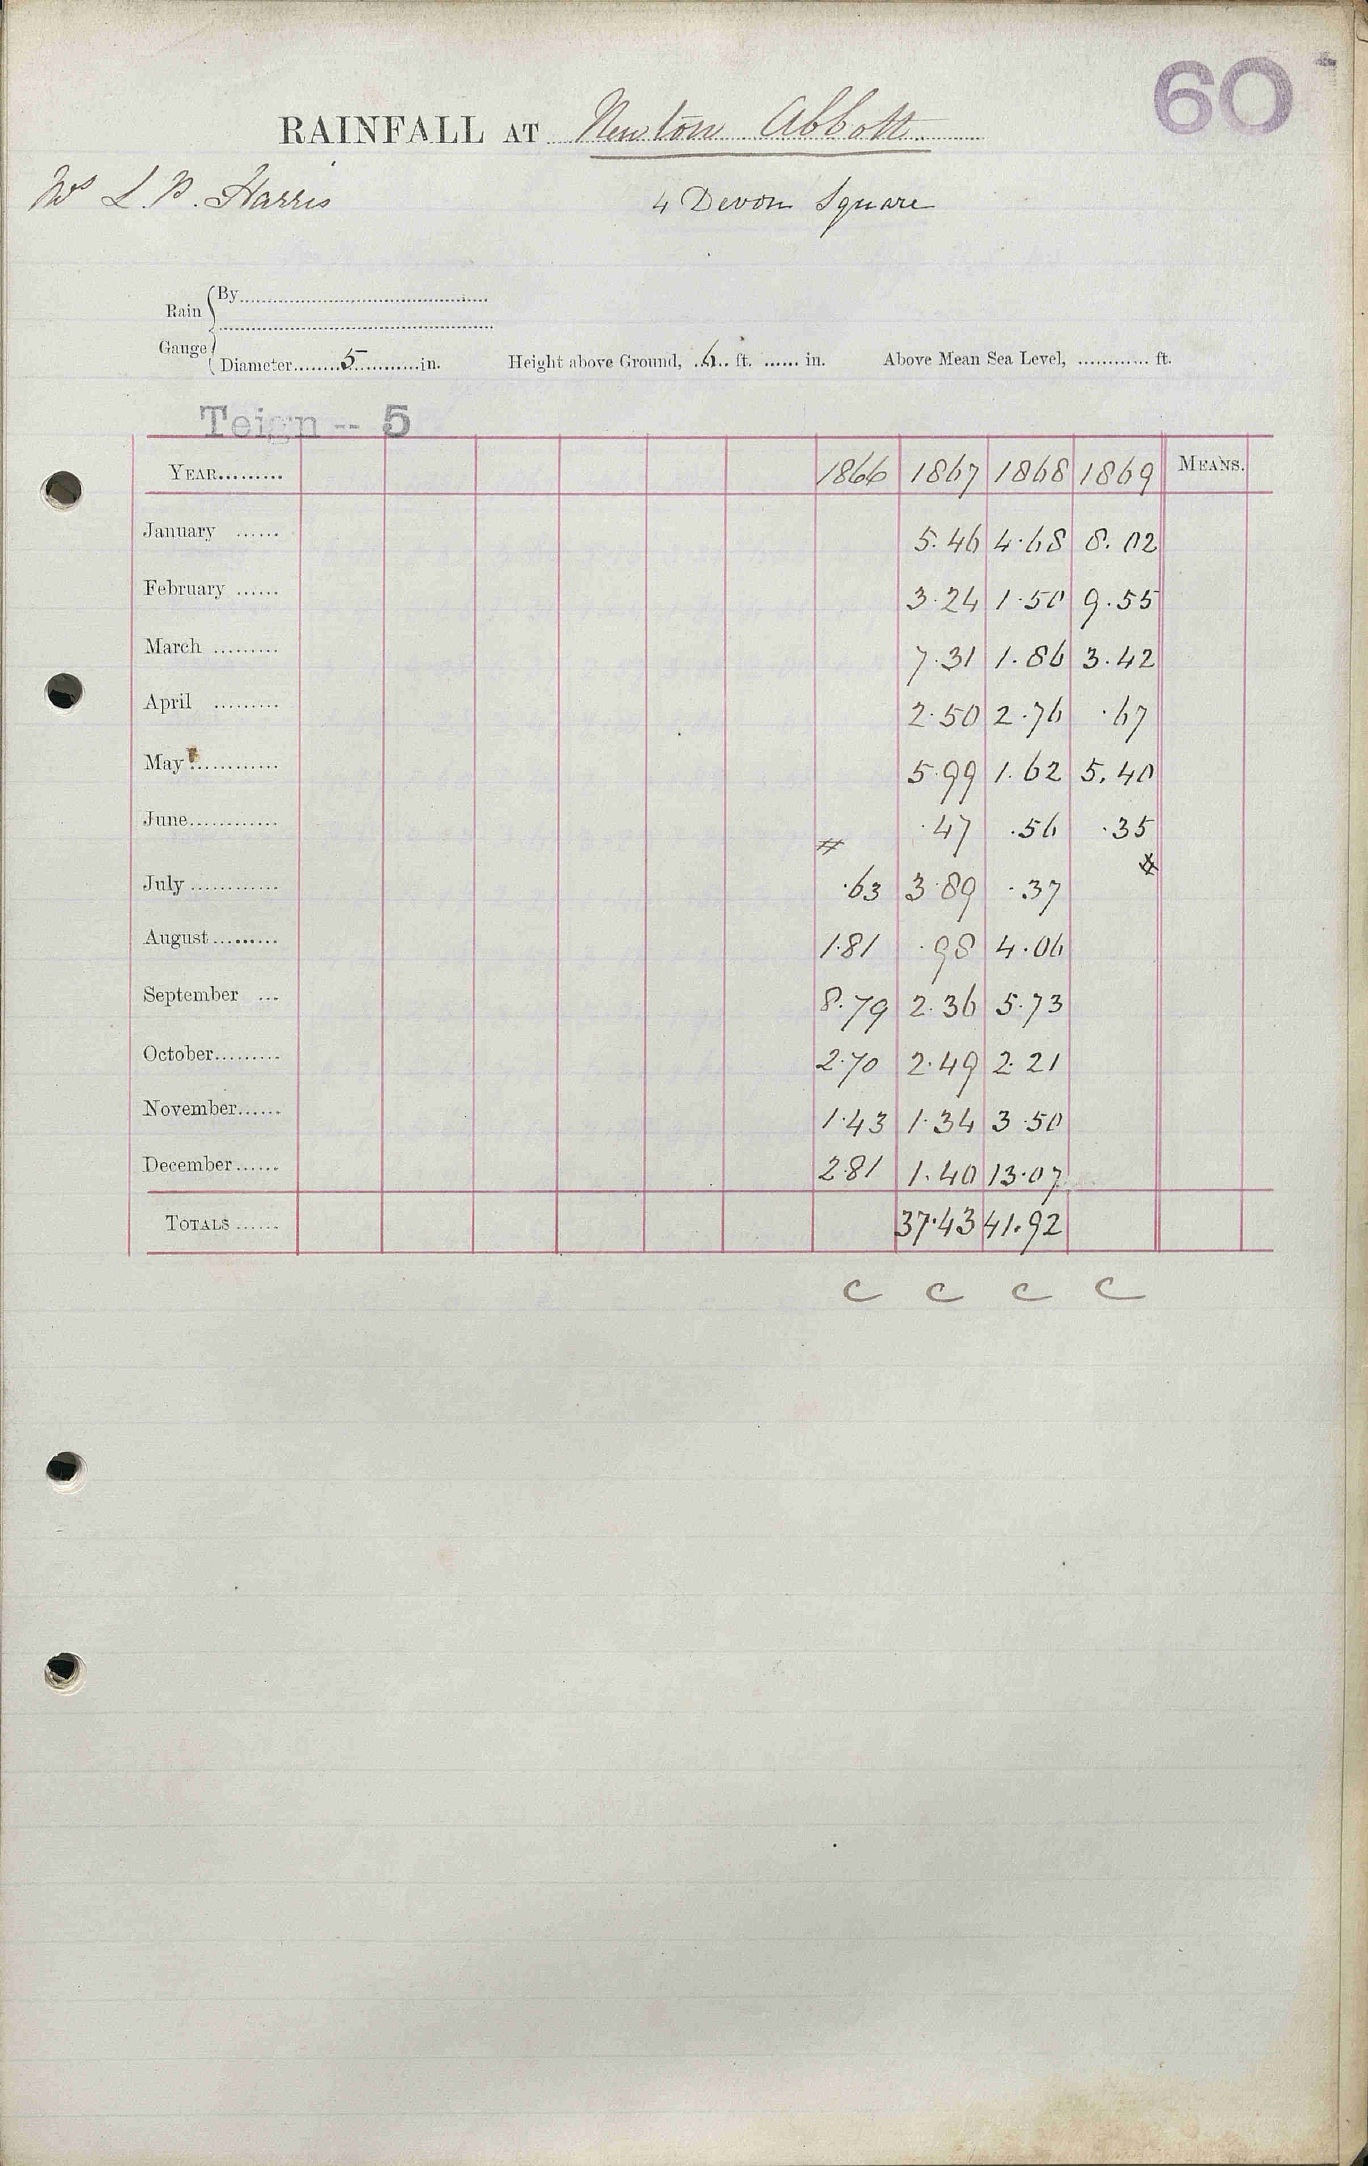 60
RAINFALL AT Newton Abbott
L. P. Harris 4 Devon Square
Rain Gauge
By
Diameter 5 in. Height above Ground, 6 ft. in. Above Mean Sea Level, ft.
Teign -- 5
YEAR 1866 1867 1868 1869 MEANS.
January 5.46 4.68 8.02
February 3.24 1.50 9.55
March 7.31 1.86 3.42
April 2.50 2.76 .67
May 5.99 1.62 5.40
June .47 .56 .35
July .63 3.89 .37
August 1.81 .98 4.06
September 8.79 2.36 5.73
October 2.70 2.49 2.21
November 1.43 1.34 3.50
December 2.81 1.40 13.07
TOTALS 37.43 41.92
C C C C